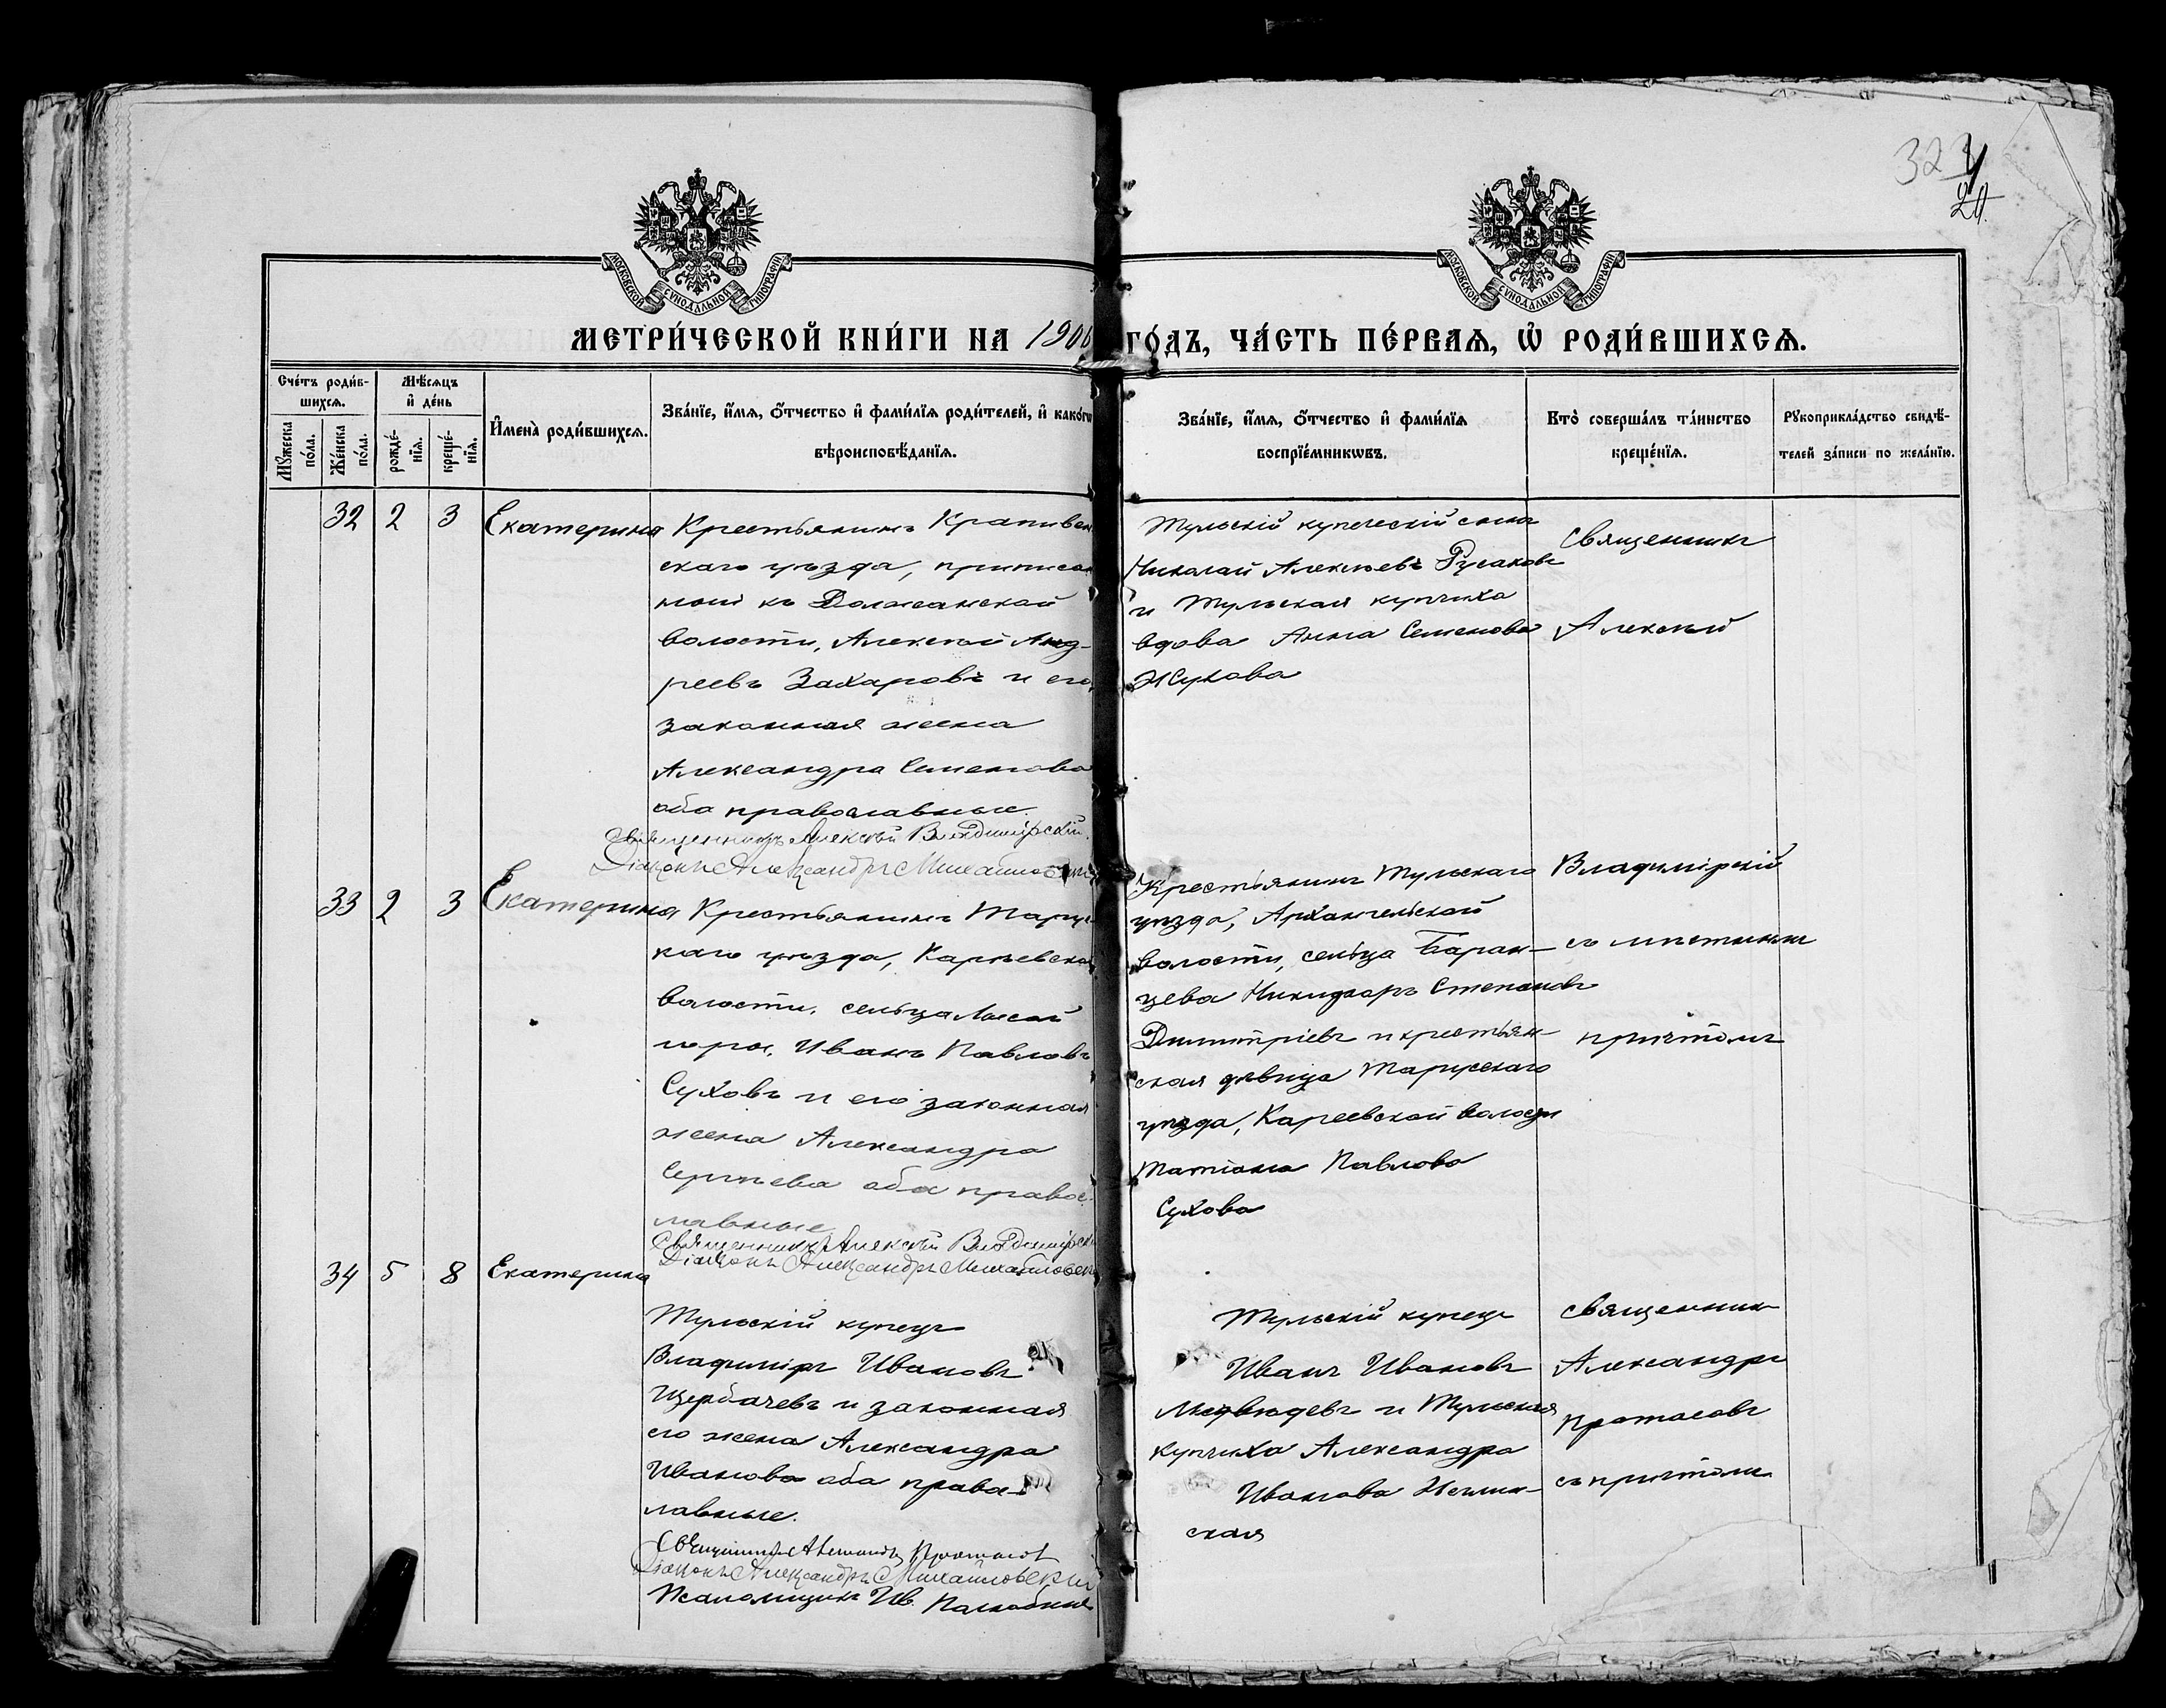 323
20.
МОСКОВСКОЙ СѴНОДАЛЬНОЙ ТИПОГРАФІИ
МОСКОВСКОЙ СѴНОДАЛЬНОЙ ТИПОГРАФІИ
МЕТРИ́ЧЕСКОЙ КНИ́ГИ НА 190
ГО́ДЪ, ЧА́СТЬ ПЕ́РВАѦ, Ѡ҆ РОДИ́ВШИХСѦ.
Сче́тъ роди́в-
шихсѧ.
Мꙋ́жеска по́ла.
Же́нска по́ла.
Мѣ́сѧцъ
и҆ де́нь
рожде́-нїѧ.
креще́-нїѧ.
И҆мена̀ роди́вшихсѧ.
Зва́нїе, и҆́мѧ, ѻ҆́тчество и҆ фами́лїѧ роди́телей, и҆ како́гѡ
вѣроисповѣ́данїѧ.
Зва́нїе, и҆́мѧ, ѻ҆́тчество и҆ фами́лїѧ
воспрїе́мникѡвъ.
Кто̀ соверша́лъ та́инство
креще́нїѧ.
Рꙋкоприкла́дство свидѣ́-
телей за́писи по жела́нїю.
32 2 3 Екатерина
Крестьянинъ Крапивен
скаго уѣзда, приписан
ной къ Должанской
волости, Алексѣй Анд-
реевъ Захаровъ и его
законная жена
Александра Семенова
оба православные.
Священникъ Алексѣй Владимірскій.
Діаконъ Александръ Михайловскі
Тульскій купеческій сынъ
Николай Алексѣевъ Русаковъ
и Тульская купчиха
вдова Анна Семенова
Жукова
Священникъ
Алексѣй
Владимірскій
съ мѣстнымъ
причтомъ
33 2 3 Екатерина
Крестьянинъ Тарус
каго уѣзда, Карѣевской
волости, сельца Лысой
горы, Иванъ Павловъ
Суховъ и его законная
жена Александра
Сергѣева оба правос-
лавные
Священникъ Алексѣй Владимірскі
Діаконъ Александръ Михайловск
Крестьянинъ Тульскаго
уѣзда, Архангельской
волости, сельца Баран-
цева Никифоръ Степановъ
Димитріевъ и крестьян-
ская дѣвица Тарусскаго
уѣзда, Кареевской волости
Татіана Павлова
Сухова
34 5 8 Екатерина
Тульскій купецъ
Владиміръ Ивановъ
Щербачевъ и законная
его жена Александра
Иванова оба право-
лавные.
Священникъ Александръ Протасовъ
Діаконъ Александръ Михайловскій
Псаломщикъ Ив.
Тульскій купецъ
Иванъ Ивановъ
Медвѣдевъ и Тульская
купчиха Александра
Иванова
ская
священник
Александръ
Протасовъ
съ причтомъ